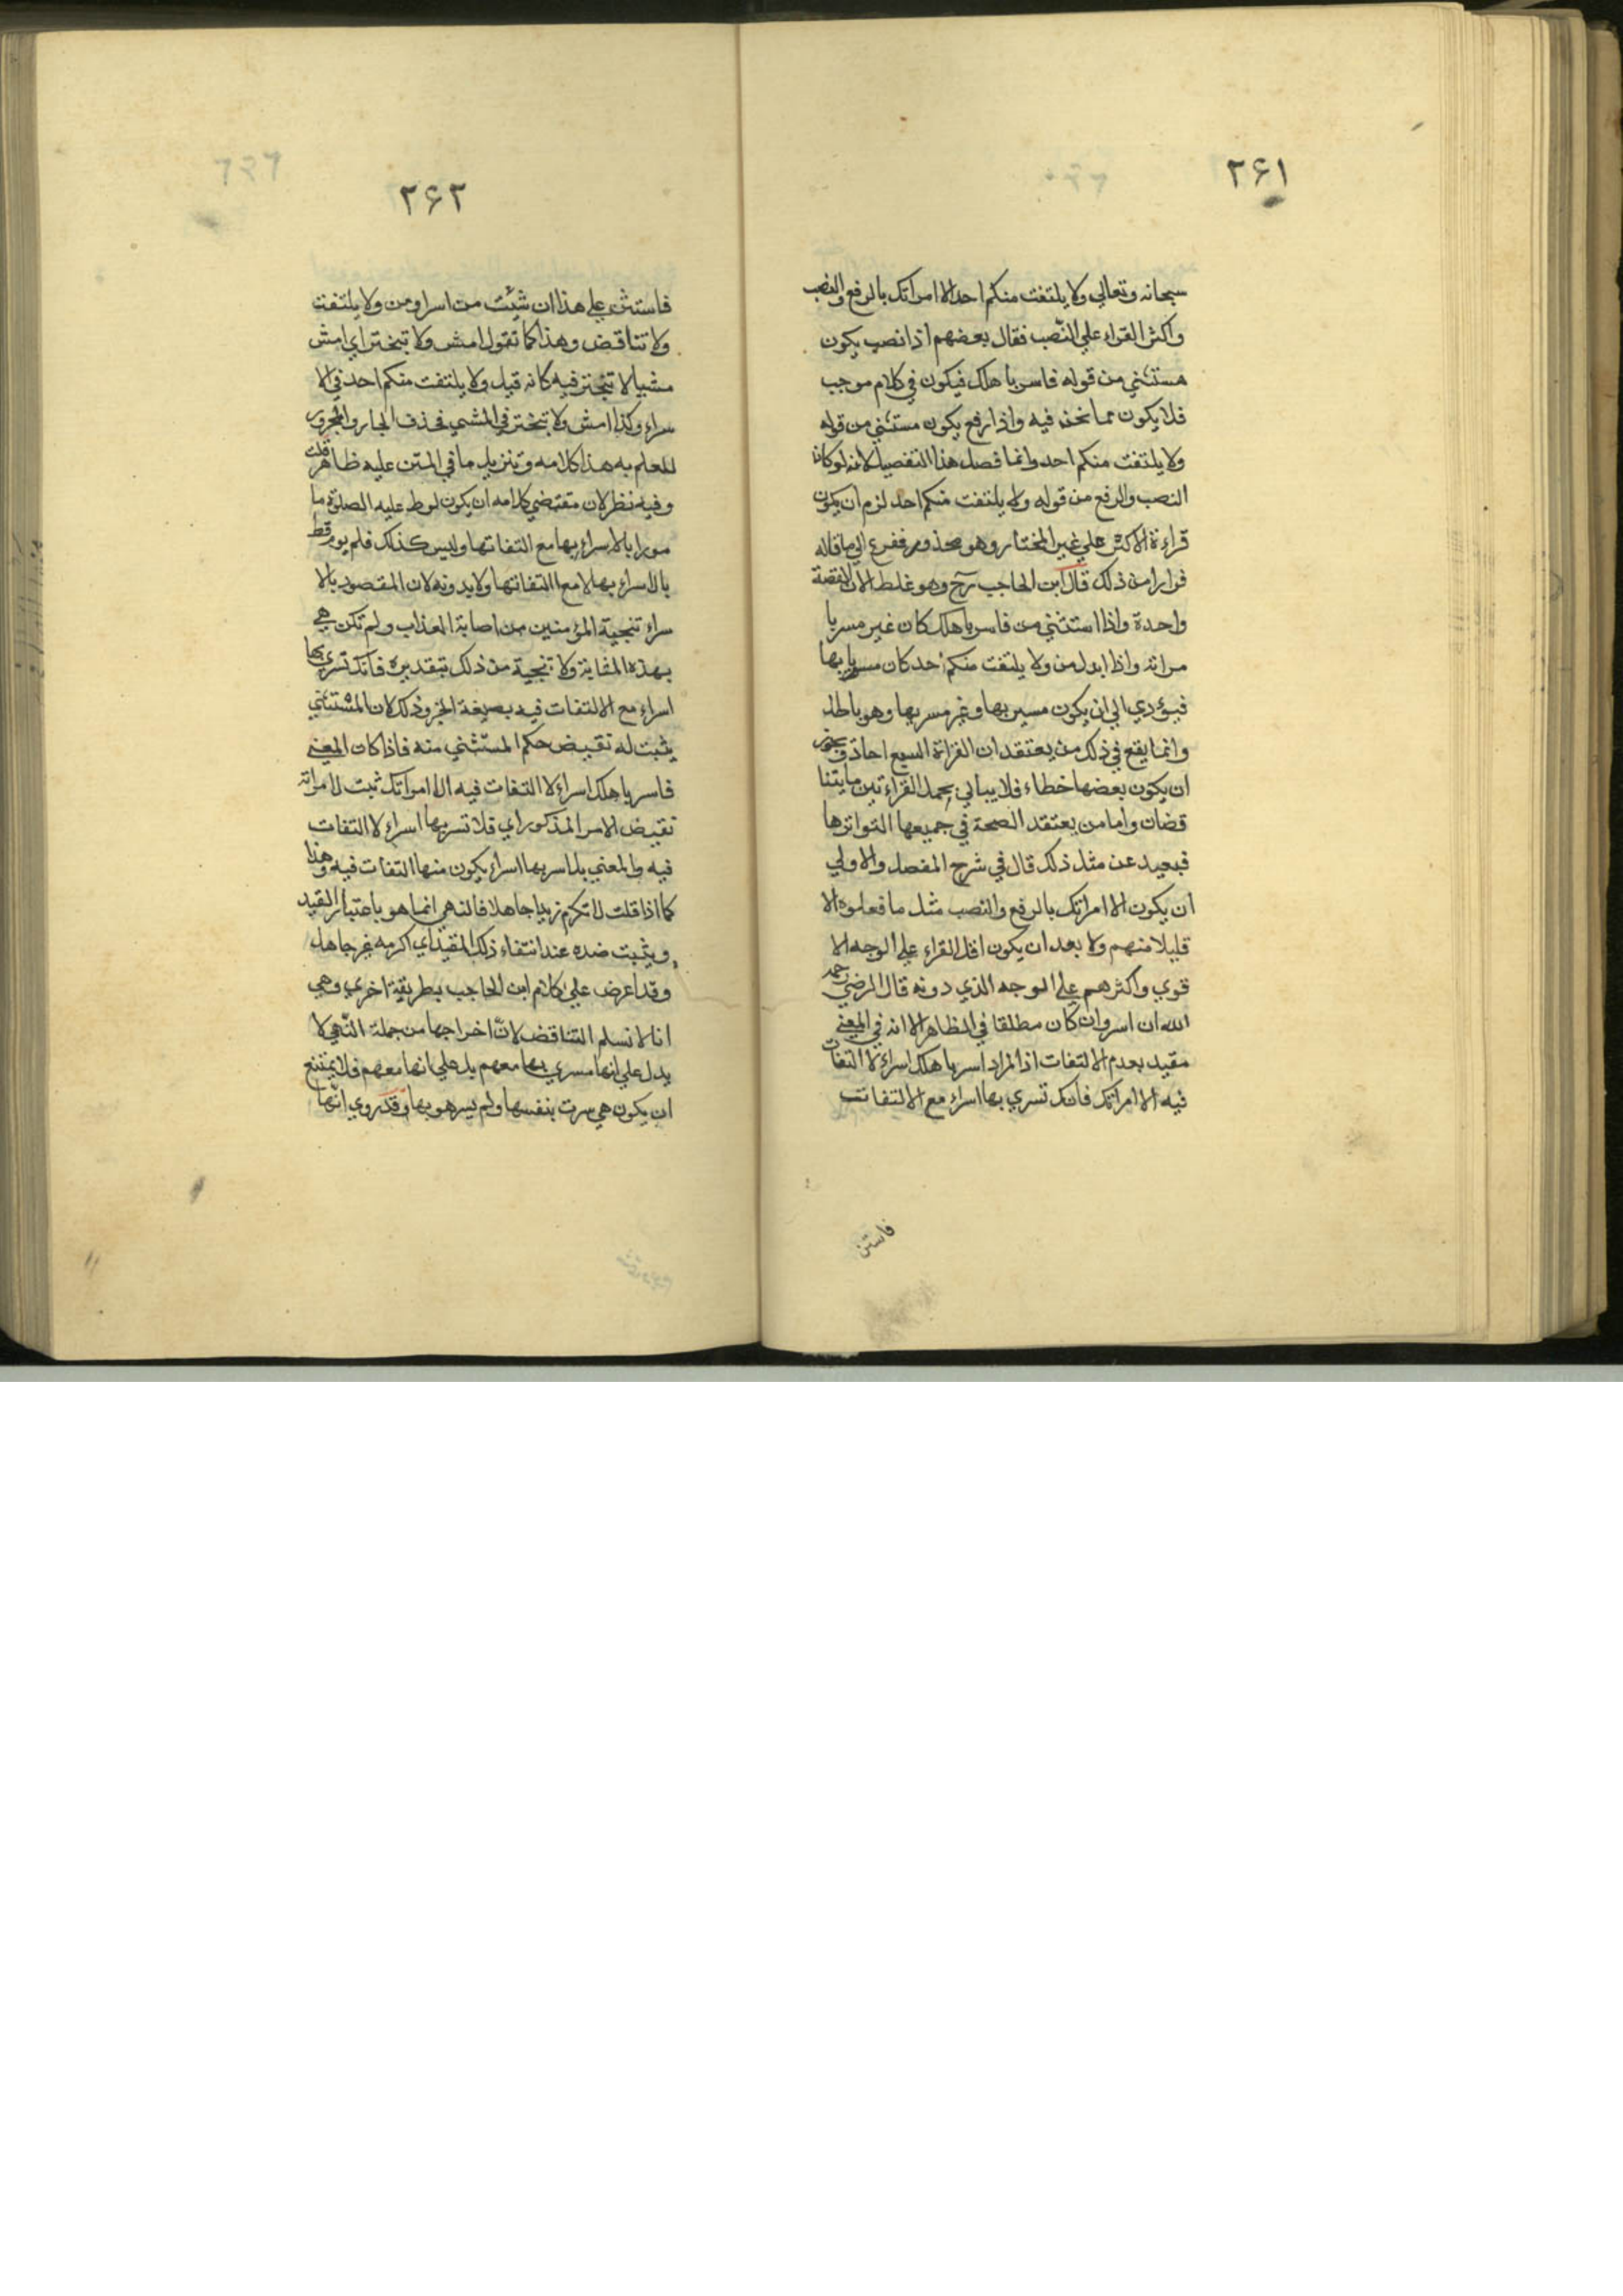 ٢٤١
سبحانه وتعالي ولا يلتفت منكم احد الا امراتك بالرفع والنصب
واكثر القراء علي النّصب فقال بعضهم اذا نصب يكون
مستثني من قوله فاسر باهلك فيكون في كلام موجب
فلا يكون مما نحن فيه واذا رفع يكون مستثني من قوله
ولا يلتفت منكم احد وانما فصل هذا التفصيل لانه لو كان
النصب والرفع من قوله ولا يلتفت منكم احد لزم ان يكون
قراءة الاكثر علي غير المختار وهو محذور ففرع الي ما قاله
فرارا من ذلك قال ابن الحاجب رح وهو غلط لان القصة
واحدة واذا استثني من فاسر باهلك كان غير مسر با
مراته واذا ابدل من ولا يلتفت منكم احد كان مسريا بها
فيؤدي الي ان يكون مسري بها وغير مسر بها وهو باطل
وانما يقع في ذلك من يعتقد ان القراة السبع احاد ويجوز
ان يكون بعضها خطاء فلا يبالي بحمل القراءتين ما يتنا
قضان واما من يعتقد الصحة في جميعها التواترها
فبعيد عن مثل ذلك قال في شرح المفصل والاولي
ان يكون الا امراتك بالرفع والنصب مثل ما فعلوه الا
قليلا منهم ولا بعد ان يكون اقل القراء علي الوجه الا
قوي واكثرهم علي الوجه الذي دونه قال الرضي رحمه
الله ان اسر وان كان مطلقا في الظاهر الا انه في المعني
مقيد بعدم الالتفات اذ المراد اسر باهلك اسراء لا التفات
فيه الا امراتك فانك تسري بها اسراء مع الالتفات
فاستثن
٢٤٢
فاستثن علي هذا ان شئت من اسر او من ولا يلتفت
ولا تناقض وهذا كما تقول امش ولا تتبختر اي امش
مشيا لا تتبختر فيه كانه قيل ولا يلتفت منكم احد في الا
سراء وكذا امش ولا تتبختر في المشي فحذف الجار والمجرور
للعلم به هذا كلامه وتنزيل ما في المتن عليه ظاهر قلت
وفيه نظر لان مقتضي كلامه ان يكون لوط عليه الصلوة ما
مورا بالاسراء بها مع التفاتها وليس كذلك فلم يومر قط
بالاسراء بها لا مع التفاتها ولا بدونه لان المقصود بالا
سراء تنجية المؤمنين من اصابة العذاب ولم تكن هي
بهذه المثابة ولا تنجية من ذلك بتقديره فانك تسري بها
اسراء مع الالتفات فيه بصيغة الخبر وذلك لان المستثني
يثبت له نقيض حكم المستثني منه فاذا كان المعني
فاسر باهلك اسراء لا التفات فيه الا امراتك ثبت لامراته
نقيض الامر المذكور اي فلا تسر بها اسراء لا التفات
فيه والمعني بل اسر بها اسراء يكون منها التفات فيه وهذا
كما اذا قلت لا تكرم زيدا جاهلا فالنهي انما هو باعتبار القيد
ويثبت ضده عند انتفاء ذلك المقيد اي اكرمه غير جاهل
وقد اعرض علي كلام ابن الحاجب بطريقة اخري وهي
انا لا نسلم التناقض لانّ اخراجها من جملة النّهي لا
يدل علي انها مسري بها معهم بل علي انها معهم فلا يمتنع
ان يكون هي سرت بنفسها ولم يسر هو بها وقد روي انّها